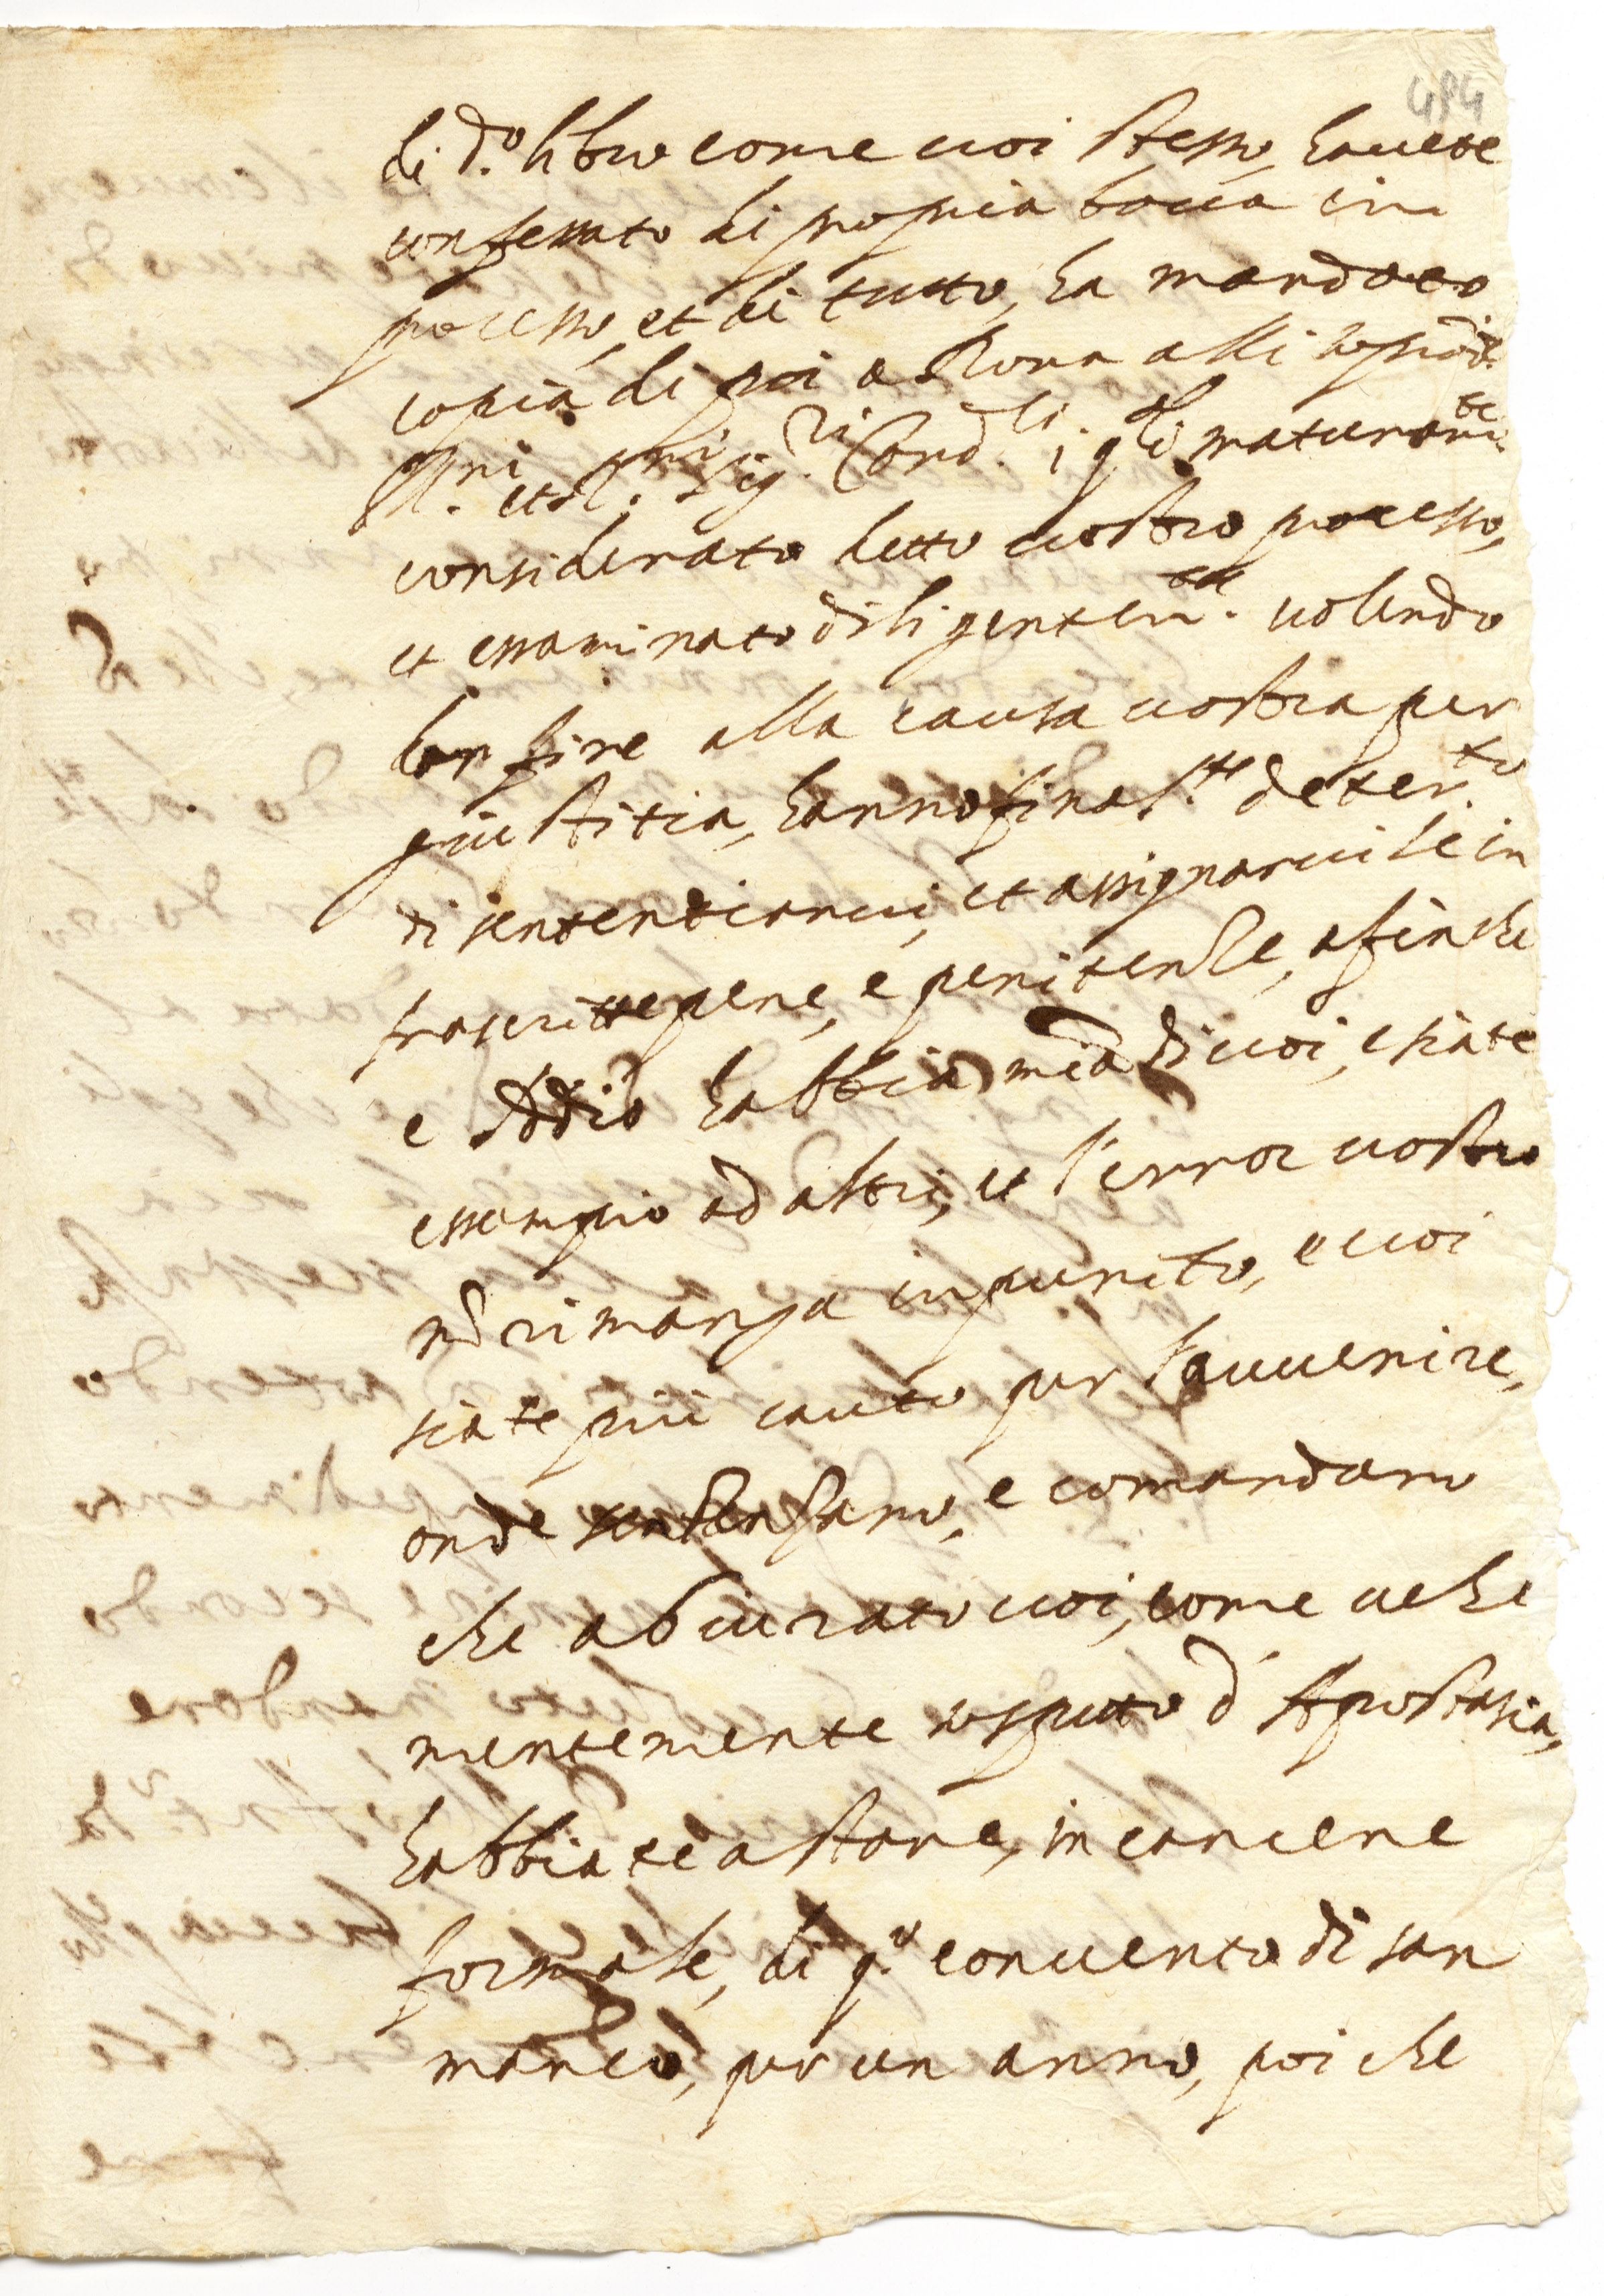 484
di d.º libro come voi stesso havete
confessato di propria bocca in
processo, et di tutto, ha mandato
copia di poi a Roma alli sopradi.
Ill.mi et R.mi Sig.ri Card.li i q.li maturam.te
considerato detto vostro processo,
et essaminato diligentem.te volendo
dar fine alla causa vostra per
giustitia, hanno final.te deter.to
di sententiarvi, et assignarvi le in
frascritte pene, e penitenze, afinche
e Iddio habbia mia di voi, e siate
essempio ad altri, et l'error vostro
nō rimanga inpunito, e voi
siate più cauto per l'avvenire,
onde sentenziamo, e comandamo
che abiurato voi, come vehe
mentemente sospetto d'Apostasia,
habbiate à stare, in carcere
formale, di q.º convento di san
marco, per un anno, poi che